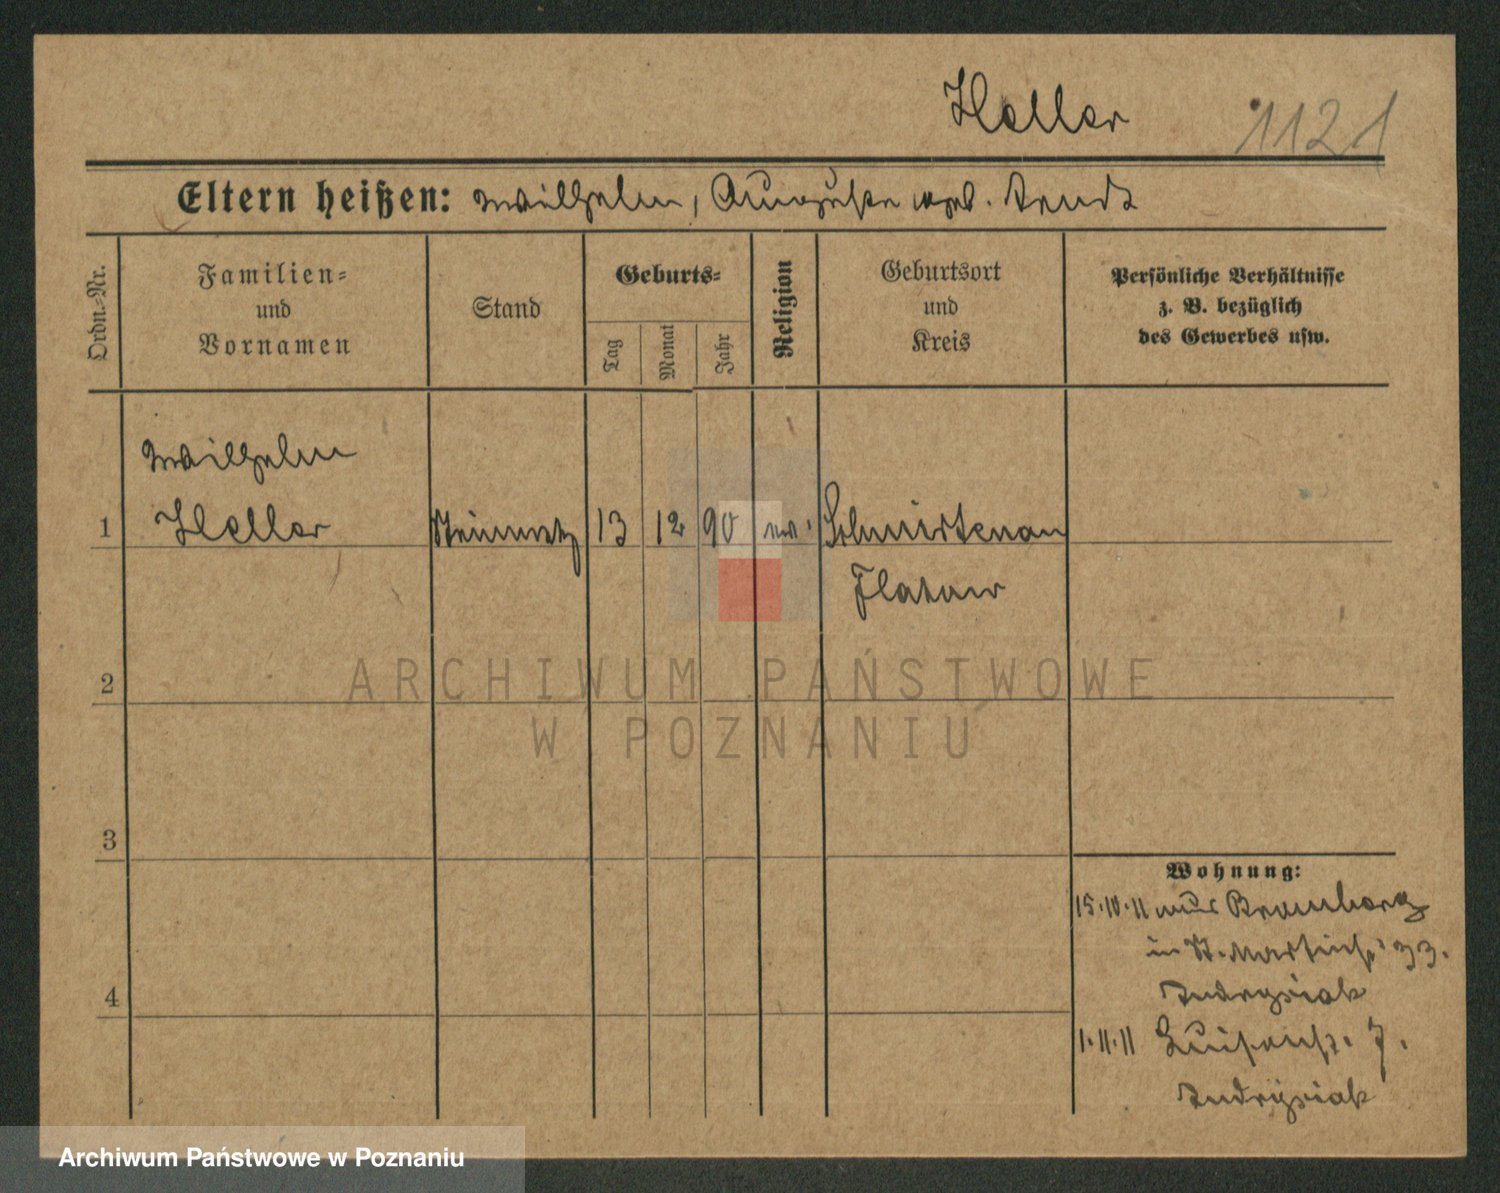 Heller 1121
Eltern heißen: Wilhelm, Auguste geb. Arndt
Ordn.=Nr.
Familien=
und
Vornamen
Stand
Geburts=
Tag
Monat
Jahr
Religion
Geburtsort
und
Kreis
Persönliche Verhältnisse
z. B. bezüglich
des Gewerbes usw.
Wilhelm
1 Heller Steinmetz 13 12 90 ev. Schmirtenau
Flatow
2
3
4
Wohnung:
15.10.11 aus Bromberg
in St. Martinstr. 33.
Andrzejak
1.11.11 Luisenstr. 7.
Andrzejak
ARCHIWUM PAŃSTWOWE
W POZNANIU
Archiwum Państwowe w Poznaniu